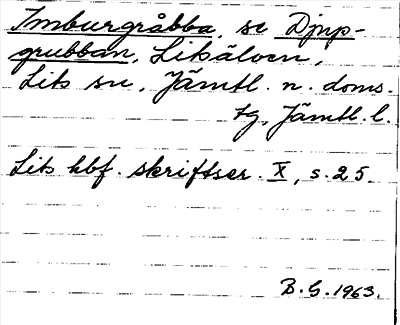 Imburgråbba, se Djup-
grubban, Litsälven,
Lits sn, Jämtl. n. doms.
tg, Jämtl. l.
Lits hbf. skriftser. X, s. 25.
B.G. 1963.